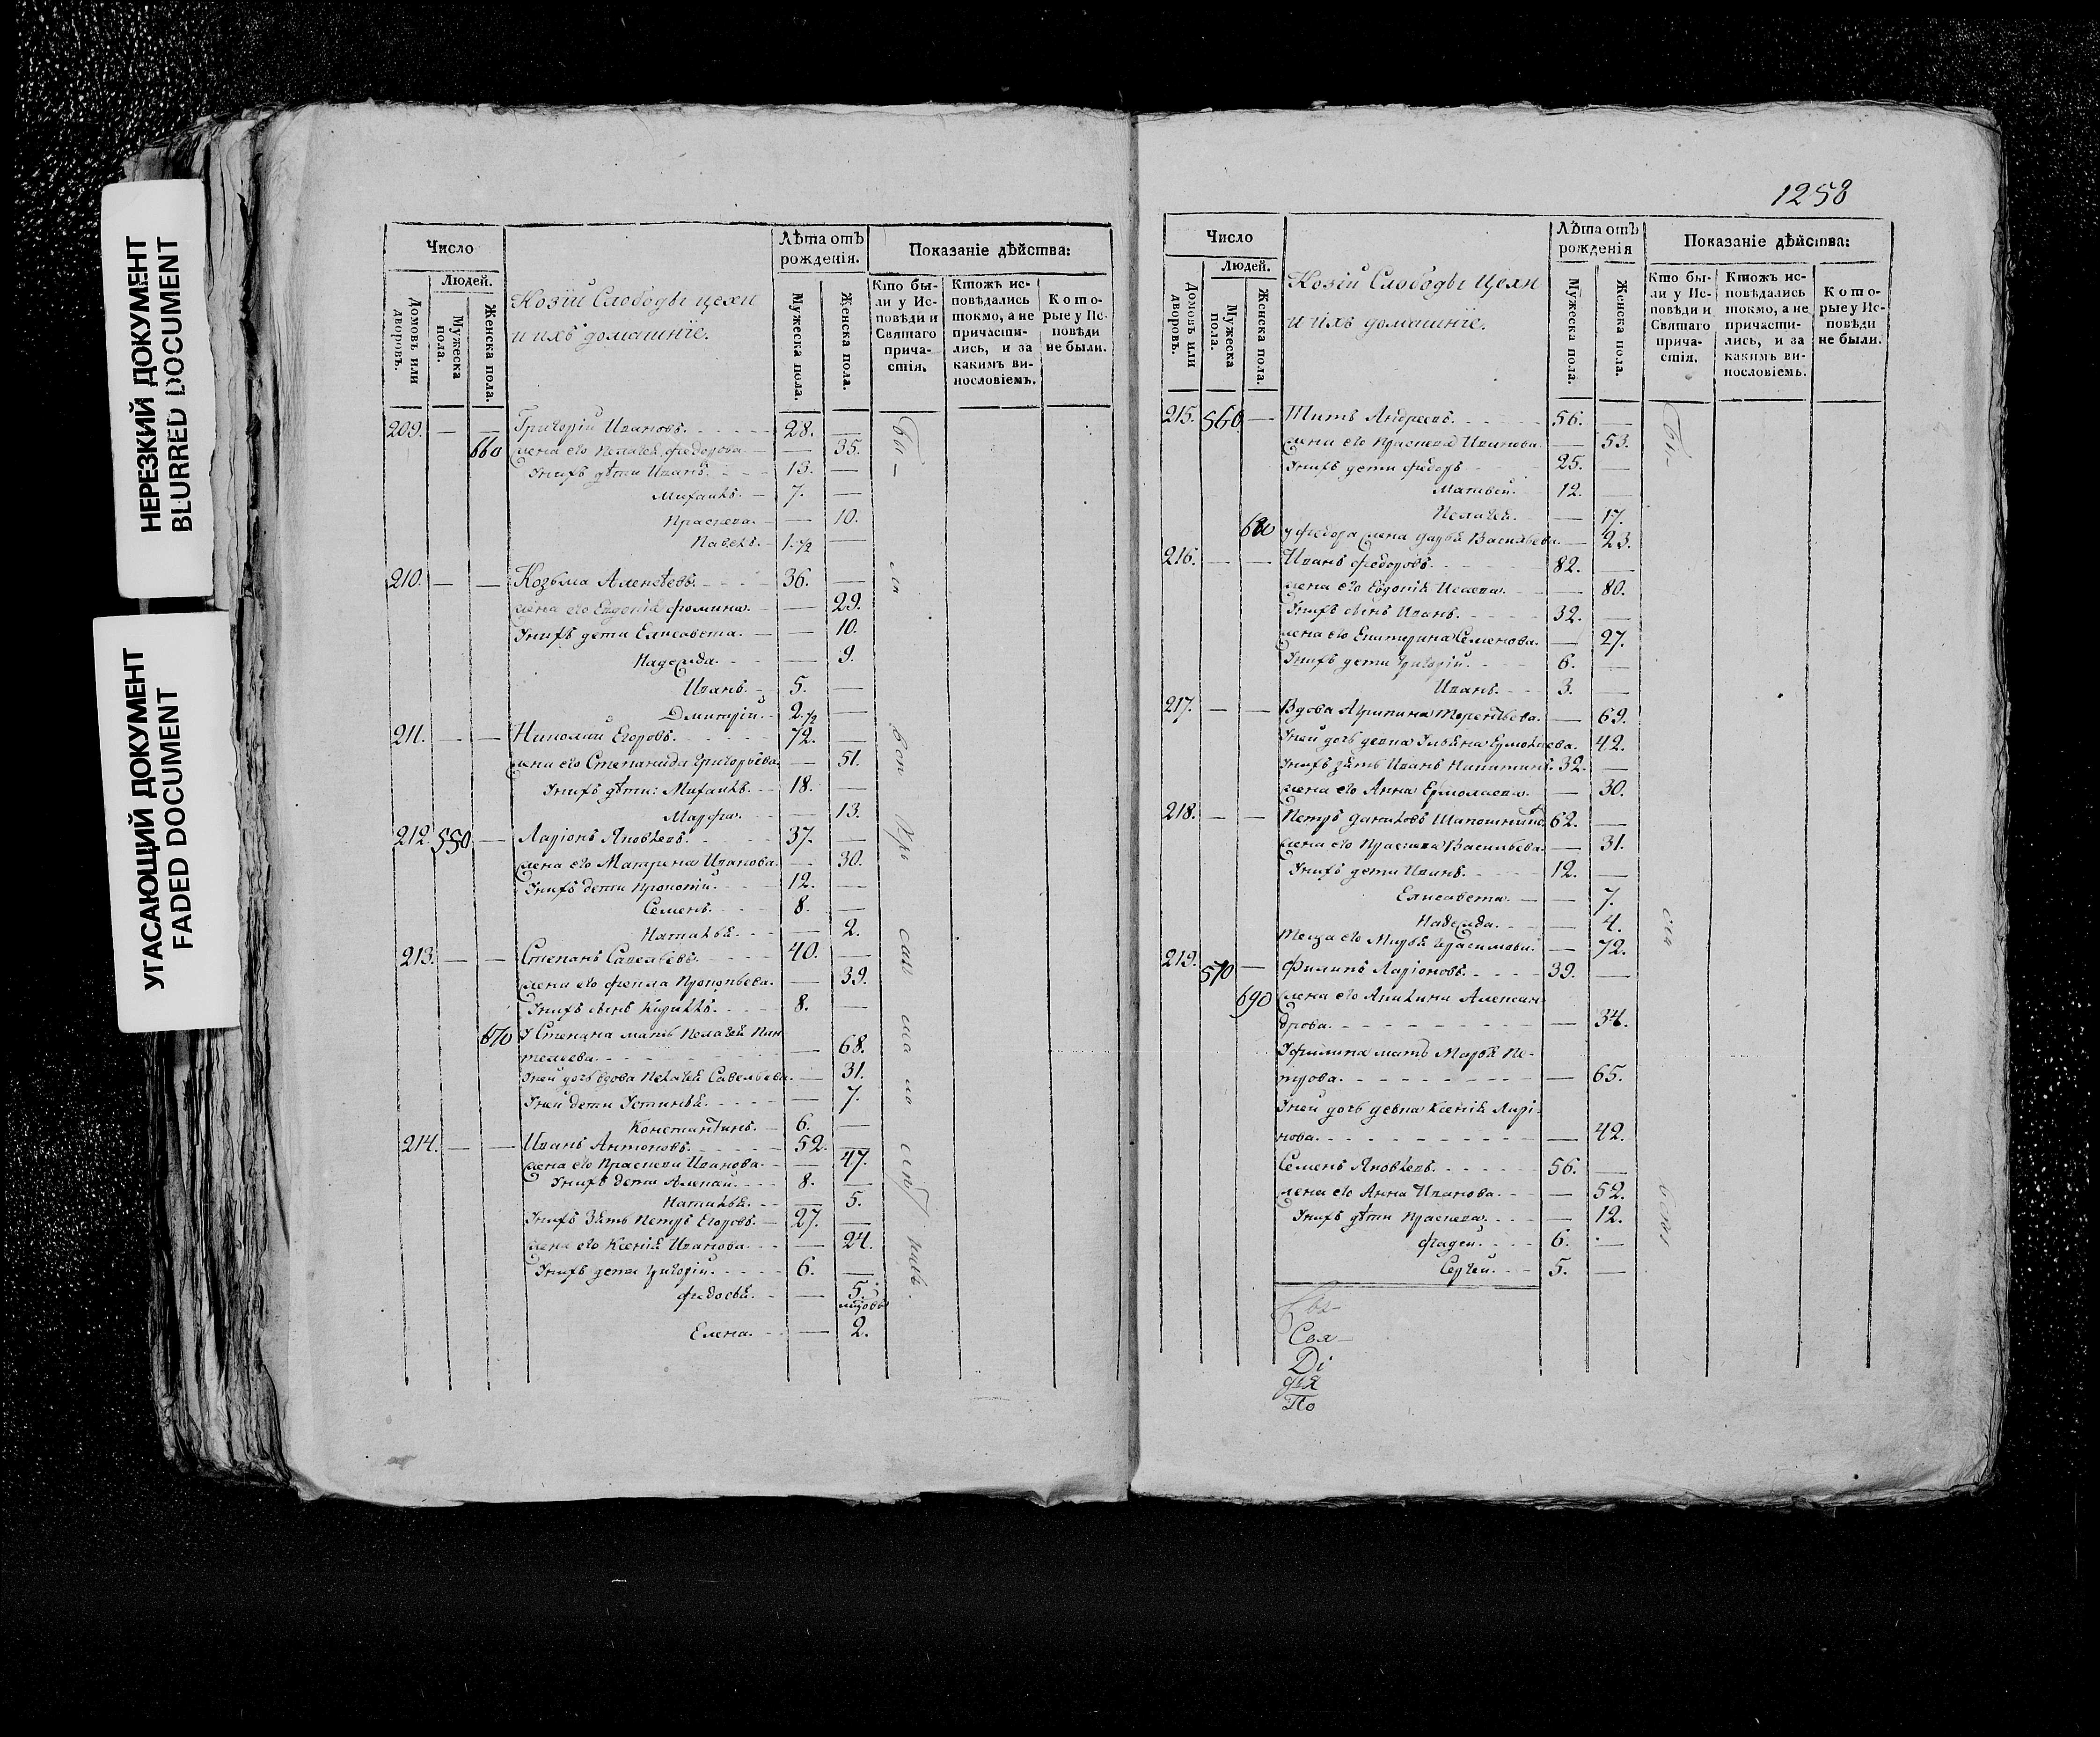 НЕРЕЗКИЙ ДОКУМЕНТ
BLURRED DOCUMENT
УГАСАЮЩИЙ ДОКУМЕНТ
FADED DOCUMENT
Число
Людей.
Домовъ или дворовъ.
Мужеска пола.
Женска пола.
Козiй Слободы цехи
и ихъ домашнiе.
Лѣта отъ
рожденiя.
Мужеска пола.
Женска пола.
Показанiе дѣйства:
Кто бы-
ли у Ис-
повѣди и
Святаго
прича-
стiя.
Ктожъ ис-
повѣдались
токмо, а не
причасти-
лись, и за
какимъ ви-
нословiемъ.
Кото-
рые у Ис-
повѣди
не были.
209. — — Григорiй Ивановъ. 28. —
660 жена его Пелагея Федорова — 35.
У нихъ дѣти Иванъ. 13. —
Михаилъ. 7. —
Прасковa. — 10.
Павелъ. 1 1/2 —
210. — — Козьма Алексѣевъ. 36. —
жена его Евдокiя Фомина. — 29.
У нихъ дети Елисавета. — 10.
Надежда. — 9.
Иванъ. 5. —
Дмитрiй. 2 1/2 —
211. — — Николай Егоровъ. 72. —
жена его Степанида Григорьева. — 51.
У нихъ дѣти: Михаилъ. 18. —
Марфа. — 13.
212. 550 — Ларiонъ Яковлевъ. 37. —
жена его Матрена Иванова. — 30.
У нихъ дети Прокопiй. 12. —
Семенъ. 8. —
Наталья. — 2.
213. — — Степанъ Савельевъ. 40. —
жена его Фекла Прокопьева. — 39.
У нихъ сынъ Кирилъ. 8. —
670 У Степана мать Пелагея Пан
телеева. — 68.
У ней дочь вдова Пелагея Савельева. — 31.
У ней дети Устинья. — 7.
Константинъ. 6. —
214. — — Иванъ Антоновъ. 52. —
жена его Прасковa Иванова. — 47.
У нихъ дети Алексей. 8. —
Наталья. — 5.
У нихъ Зять Петръ Егоровъ. 27. —
жена его Ксенiя Иванова. — 24.
У нихъ дети Григорiй. 6. —
Федосья. — 5.
Елена. — 2.
1258
Число
Людей.
Домовъ или дворовъ.
Мужеска пола.
Женска пола.
Козiй Слободы Цехи
и ихъ домашнiе.
Лѣта отъ
рожденiя
Мужеска пола.
Женска пола.
Показанiе дѣйства:
Кто бы-
ли у Ис-
повѣди и
Святаго
прича-
стiя.
Ктожъ ис-
повѣдались
токмо, а не
причасти-
лись, и за
какимъ ви-
нословiемъ.
Кото-
рые у Ис-
повѣди
не были.
215. 560 — Титъ Андреевъ. 56. —
жена его Прасковa Иванова. — 53.
У нихъ дети Федоръ 25. —
Матвей. 12. —
Пелагея. — 17.
680 у Федора жена Дарья Васильева. — 23.
216. — — Иванъ Федоровъ. 82. —
жена его Евдокiя Исаева. — 80.
У нихъ сынъ Иванъ. 32. —
жена его Екатерина Семенова. — 27.
У нихъ дети Григорiй. 6. —
Иванъ. 3. —
217. — — Вдова Агрипина Терентьева. — 69.
У ней дочь девка Ульяна Ермолаева. 42.
У нихъ зять Иванъ Никитинъ. 32. —
жена его Анна Ермолаева. — 30.
218. — — Петръ Даниловъ Шапошникъ 62. —
жена его Прасковa Васильева. — 31.
У нихъ дети Иванъ. 12. —
Елисавета. — 7.
Надежда. — 4.
теща его Марья Герасимова. — 72.
219. 570 — Филипъ Ларiоновъ. 39. —
690 жена его Акилина Алексан
дрова. — 34.
У Филипа мать Марья Пе-
трова. — 65.
У ней дочь девка Ксенiя Ларi-
нова. — 42.
Семенъ Яковлевъ. 56. —
жена его Анна Иванова. — 52.
У нихъ дѣти Прасковa. — 12.
Фадей. 6. —
Сергей. 5. —
Свя
Дi
дья
По